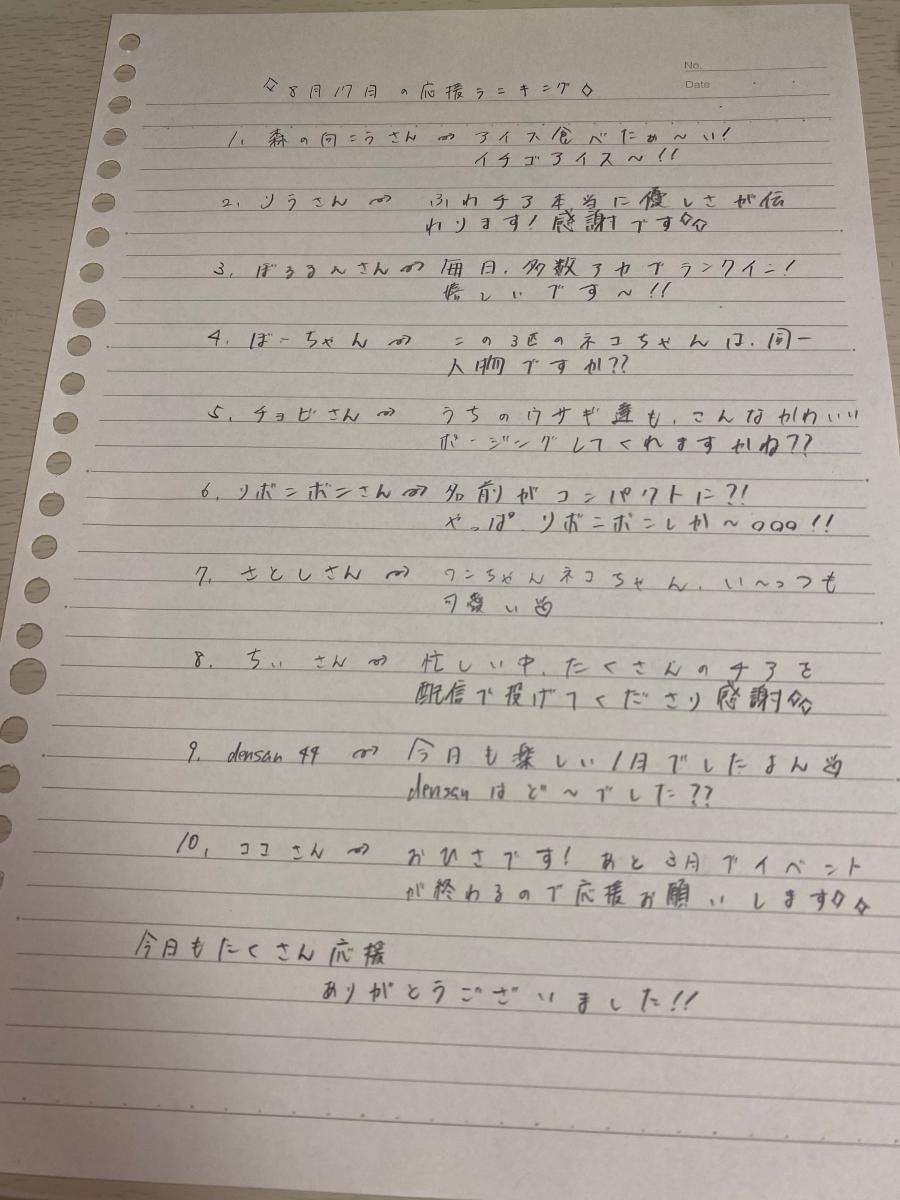 No.
Date
◇8月17日の応援ランキング◇
1. 森の向こうさん⇝ アイス食べたぁ〜い!
イチゴアイス〜!!
2. リラさん⇝ ふわチア本当に優しさが伝
わります!感謝です◇◇
3. ぽるるんさん⇝ 毎日、多数アカでランクイン!
嬉しいです〜!!
4. ぼーちゃん⇝ この3匹のネコちゃんは、同一
人物ですか??
5. チョビさん⇝ うちのウサギ達も、こんなかわいい
ポージングしてくれますかね??
6. リボンボンさん⇝ 名前がコンパクトに?!
やっぱりボンボンしか〜ooo!!
7. さとしさん⇝ ワンちゃんネコちゃん、い〜っつも
可愛い
8. ちぃさん⇝ 忙しい中、たくさんのチアを
配信で投げてくださり感謝◇◇
9. densan44⇝ 今日も楽しい1日でしたよん
densanはど〜でした??
10. ココさん⇝ おひさです!あと3日でイベント
が終わるので応援お願いします◇◇
今日もたくさん応援
ありがとうございました!!